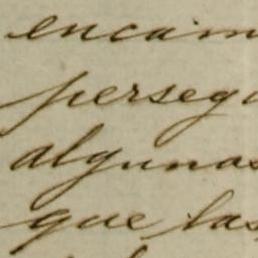 encam
persegu
algunas
que las